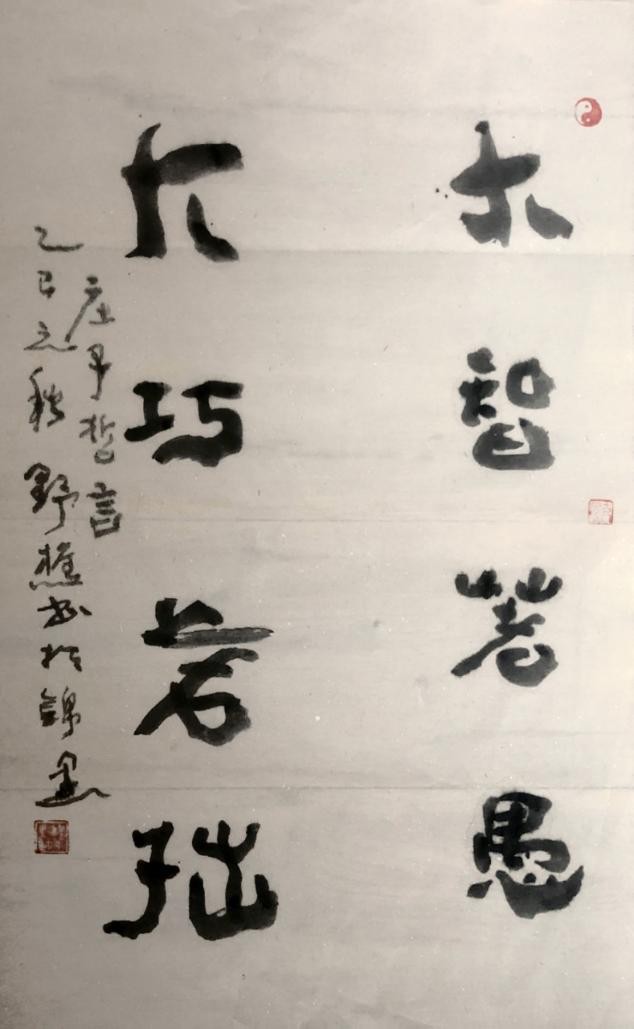 大智若愚
大巧若拙
庄子哲言
乙巳之秋 野樵书於锦